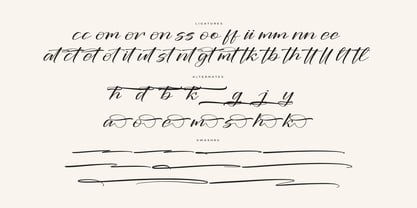 LIGATURES
cc om or on ss oo ff ii mm nn ee
at ct et ot it ut st nt gt mt lk tk th tt ll lt tl
ALTERNATES
h d b k g j y
a o e m s h k
SWASHES